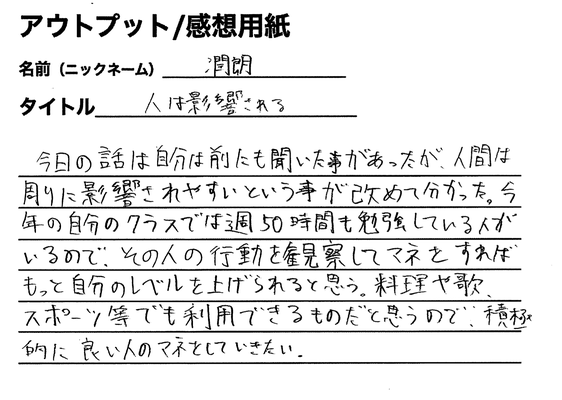 アウトプット/感想用紙
名前（ニックネーム） 潤朗
タイトル 人は影響される
今日の話は自分は前にも聞いた事があったが、人間は
周りに影響されやすいという事が改めて分かった。今
年の自分のクラスでは週50時間も勉強している人が
いるので、その人の行動を観察してマネをすれば
もっと自分のレベルを上げられると思う。料理や歌、
スポーツ等でも利用できるものだと思うので、積極
的に良い人のマネをしていきたい。